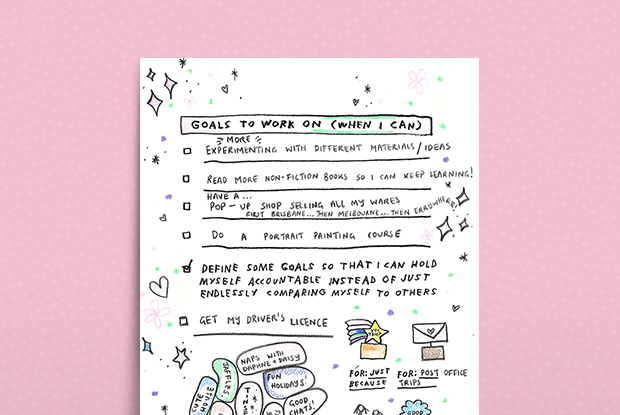 GOALS TO WORK ON (WHEN I CAN)
MORE
EXPERIMENTING WITH DIFFERENT MATERIALS/IDEAS
READ MORE NON-FICTION BOOKS SO I CAN KEEP LEARNING!
HAVE A...
POP-UP SHOP SELLING ALL MY WARES
FIRST BRISBANE... THEN MELBOURNE... THEN ERRYWHERE!
DO A PORTRAIT PAINTING COURSE
DEFINE SOME GOALS SO THAT I CAN HOLD
MYSELF ACCOUNTABLE INSTEAD OF JUST
ENDLESSLY COMPARING MYSELF TO OTHERS
GET MY DRIVER'S LICENCE
NAPS WITH
DAPHNE & DAISY
FUN
HOLIDAYS!
GOOD
CHATS!
FOR: JUST
BECAUSE
FOR: POST OFFICE
TRIPS
GOOD